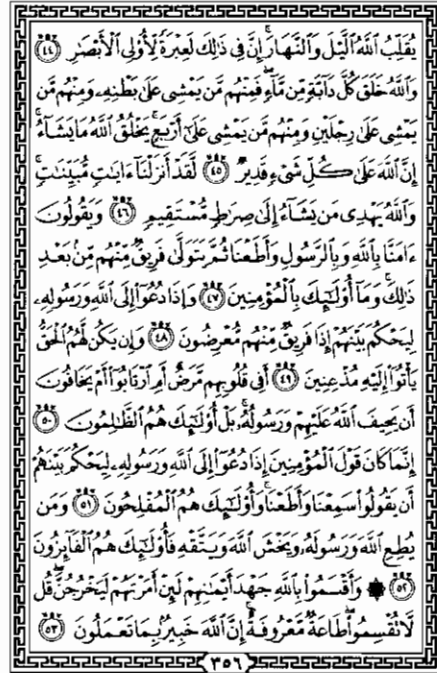 يُقَلِّبُ ٱللَّهُ ٱلَّيْلَ وَٱلنَّهَارَ ۚ إِنَّ فِى ذَٰلِكَ لَعِبْرَةً لِّأُو۟لِى ٱلْأَبْصَٰرِ ٤٤
وَٱللَّهُ خَلَقَ كُلَّ دَآبَّةٍ مِّن مَّآءٍ ۖ فَمِنْهُم مَّن يَمْشِى عَلَىٰ بَطْنِهِۦ وَمِنْهُم مَّن
يَمْشِى عَلَىٰ رِجْلَيْنِ وَمِنْهُم مَّن يَمْشِى عَلَىٰٓ أَرْبَعٍ ۚ يَخْلُقُ ٱللَّهُ مَا يَشَآءُ ۚ
إِنَّ ٱللَّهَ عَلَىٰ كُلِّ شَىْءٍ قَدِيرٌ ٤٥ لَّقَدْ أَنزَلْنَآ ءَايَٰتٍ مُّبَيِّنَٰتٍ ۚ
وَٱللَّهُ يَهْدِى مَن يَشَآءُ إِلَىٰ صِرَٰطٍ مُّسْتَقِيمٍ ٤٦ وَيَقُولُونَ
ءَامَنَّا بِٱللَّهِ وَبِٱلرَّسُولِ وَأَطَعْنَا ثُمَّ يَتَوَلَّىٰ فَرِيقٌ مِّنْهُم مِّنۢ بَعْدِ
ذَٰلِكَ ۚ وَمَآ أُو۟لَٰٓئِكَ بِٱلْمُؤْمِنِينَ ٤٧ وَإِذَا دُعُوٓا۟ إِلَى ٱللَّهِ وَرَسُولِهِۦ
لِيَحْكُمَ بَيْنَهُمْ إِذَا فَرِيقٌ مِّنْهُم مُّعْرِضُونَ ٤٨ وَإِن يَكُن لَّهُمُ ٱلْحَقُّ
يَأْتُوٓا۟ إِلَيْهِ مُذْعِنِينَ ٤٩ أَفِى قُلُوبِهِم مَّرَضٌ أَمِ ٱرْتَابُوٓا۟ أَمْ يَخَافُونَ
أَن يَحِيفَ ٱللَّهُ عَلَيْهِمْ وَرَسُولُهُۥ ۚ بَلْ أُو۟لَٰٓئِكَ هُمُ ٱلظَّٰلِمُونَ ٥٠
إِنَّمَا كَانَ قَوْلَ ٱلْمُؤْمِنِينَ إِذَا دُعُوٓا۟ إِلَى ٱللَّهِ وَرَسُولِهِۦ لِيَحْكُمَ بَيْنَهُمْ
أَن يَقُولُوا۟ سَمِعْنَا وَأَطَعْنَا ۚ وَأُو۟لَٰٓئِكَ هُمُ ٱلْمُفْلِحُونَ ٥١ وَمَن
يُطِعِ ٱللَّهَ وَرَسُولَهُۥ وَيَخْشَ ٱللَّهَ وَيَتَّقْهِ فَأُو۟لَٰٓئِكَ هُمُ ٱلْفَآئِزُونَ
٥٢ ۞ وَأَقْسَمُوا۟ بِٱللَّهِ جَهْدَ أَيْمَٰنِهِمْ لَئِنْ أَمَرْتَهُمْ لَيَخْرُجُنَّ ۖ قُل
لَّا تُقْسِمُوا۟ ۖ طَاعَةٌ مَّعْرُوفَةٌ ۚ إِنَّ ٱللَّهَ خَبِيرٌۢ بِمَا تَعْمَلُونَ ٥٣
٣٥٦